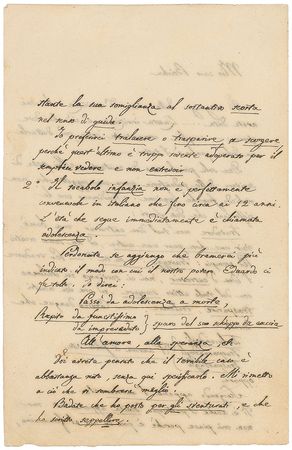 stante la sua somiglianza al sostantivo scorta
nel senso di guida.
Io preferirei tralucere o trasparire a scorgere
perché quest'ultimo è troppo sovente adoperato per il
semplice vedere e non
2° Il vocabolo infanzia non è perfettamente
convenevole in italiano che fino circa ai 12 anni
L'età che segue immediatamente è chiamata
adolescenza.
Perdonate se aggiungo che bramerei più
indicato il modo con cui il nostro povero Edoardo ci
fu tolto. Io direi:
Passò da adolescenza a morte,
Rapito da funestissimo
da impreveduto } sparo del suo schioppo da caccia
All'amore, alla speranza, etc
Voi avrete pensato che il terribile caso è
abbastanza noto, senza qui specificarlo. Mi rimetto
a ciò che vi sembrerà meglio.
Badate che ho posto per gli sventurati, e che
ho scritto seppellire.